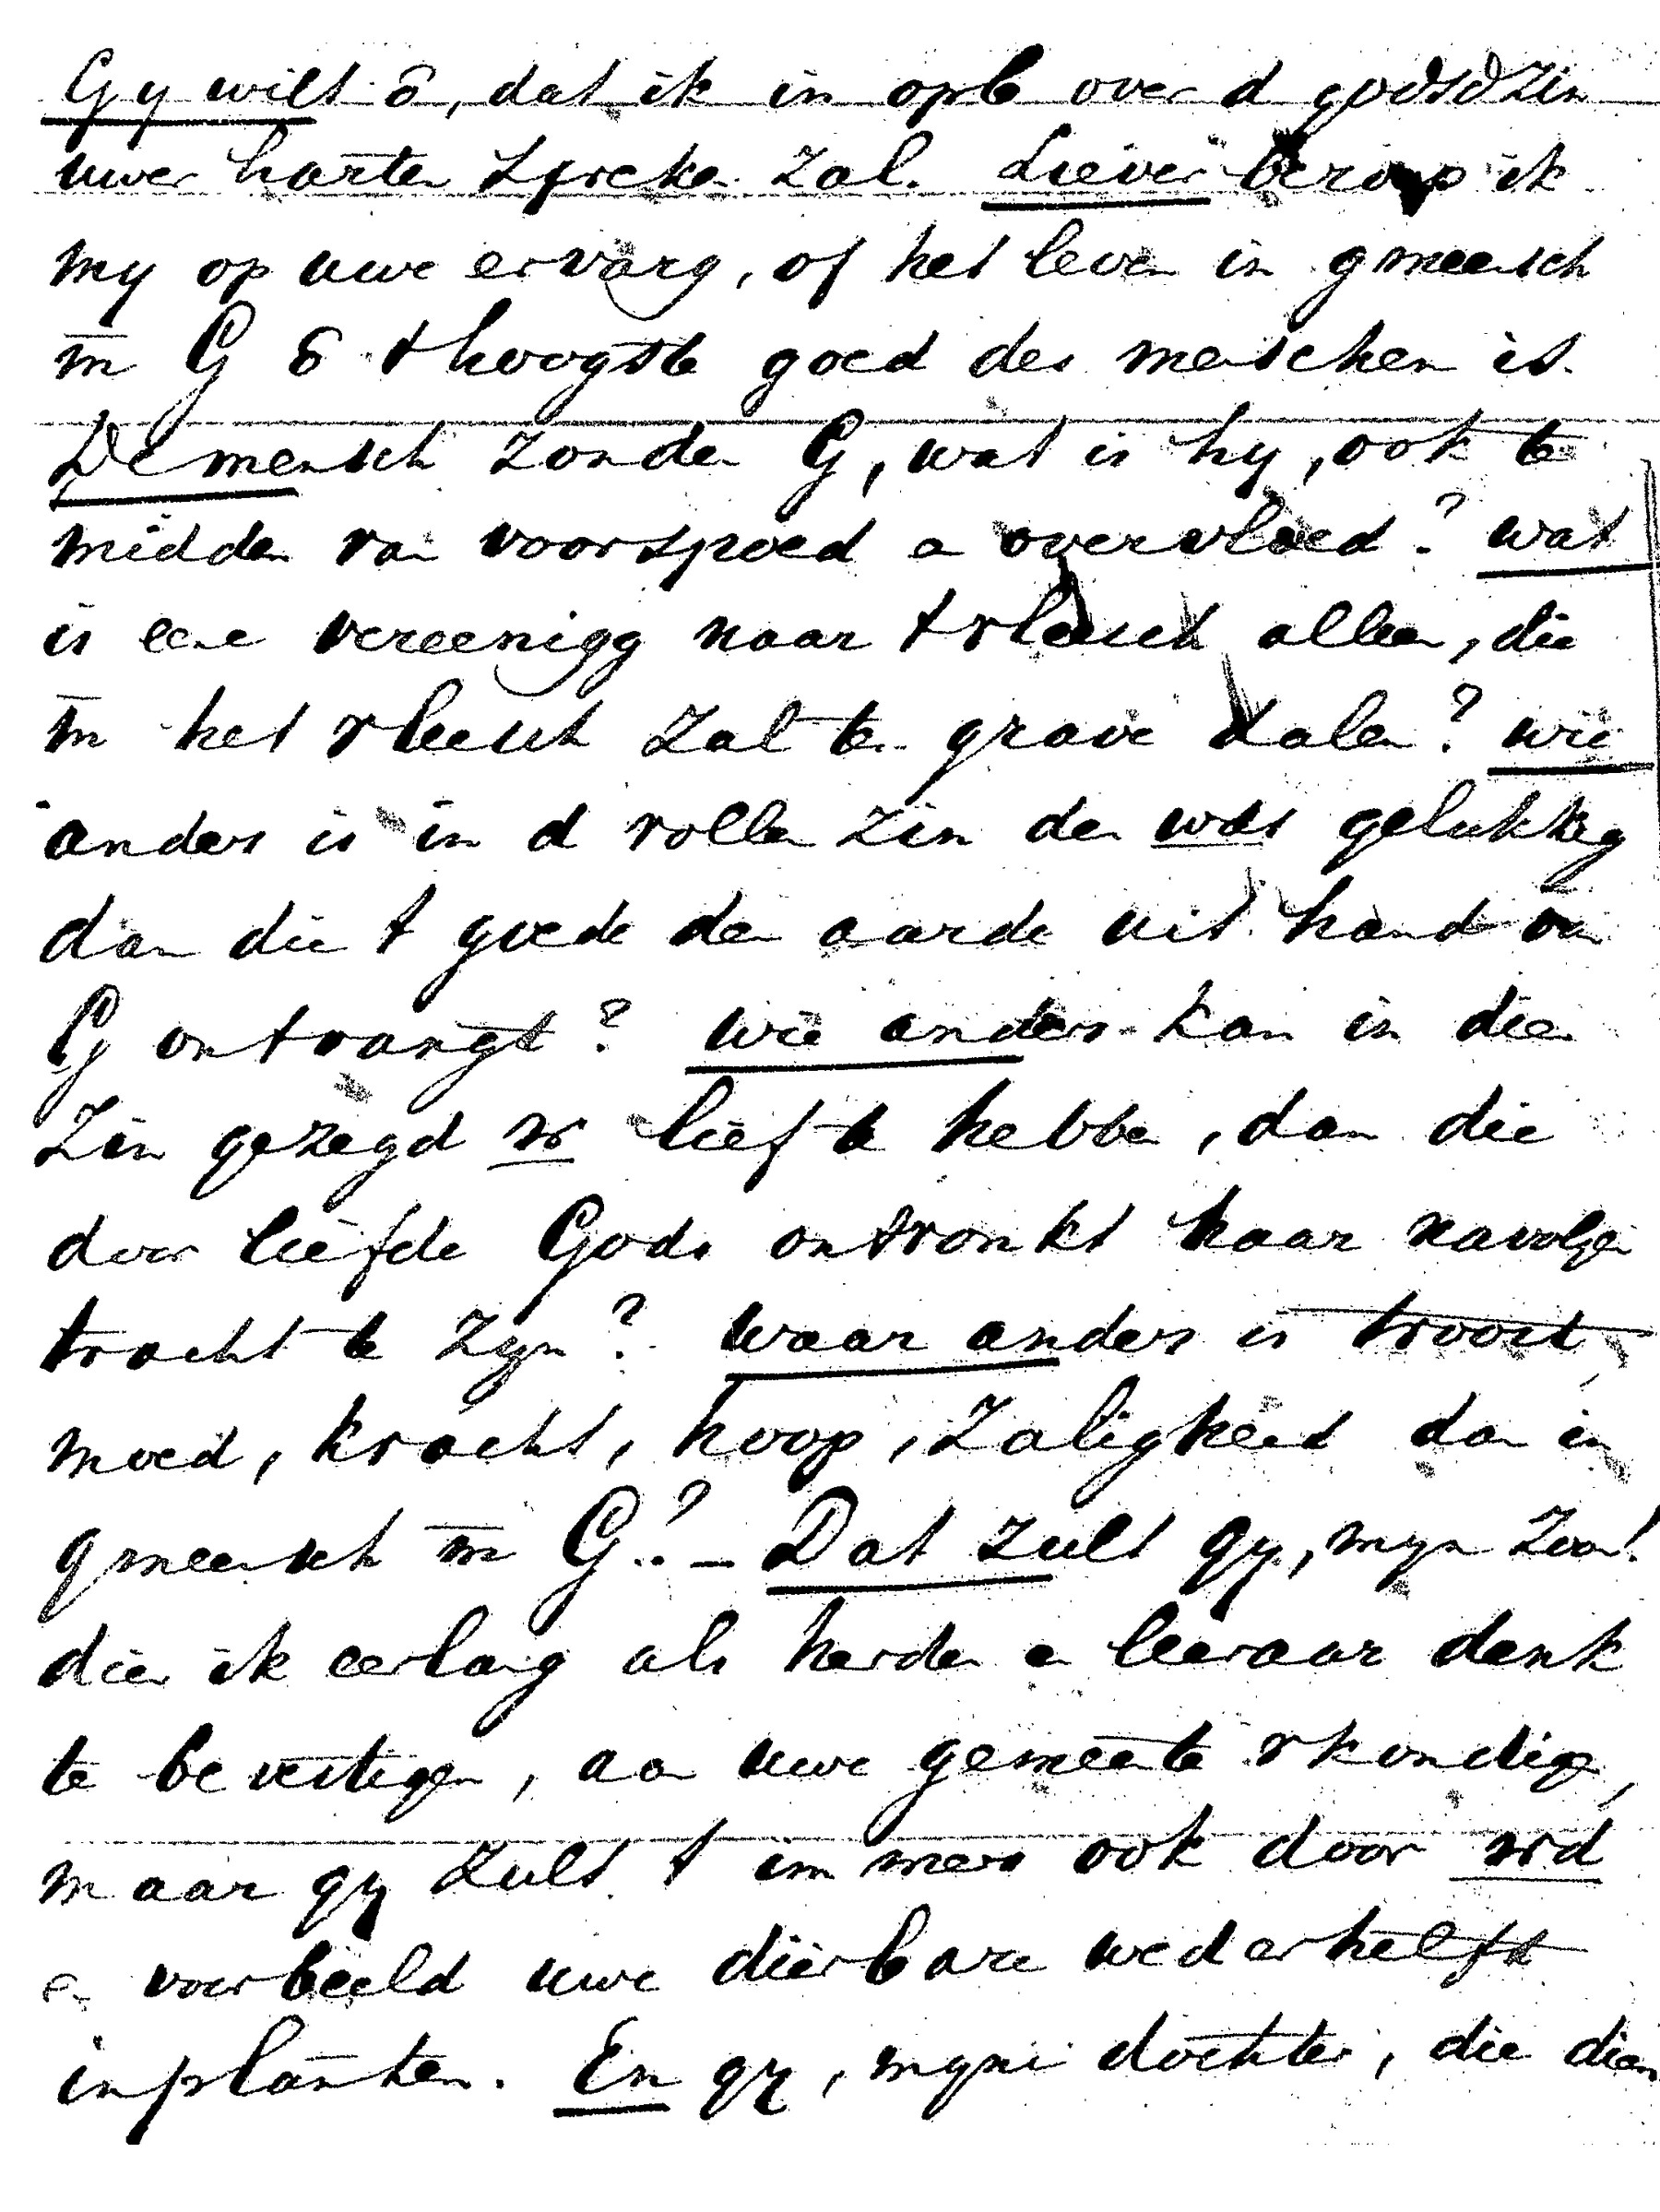 Gy wilt ō, dat ik in opb over d godsdzin
uwer harten spreke zal. Liever beroep ik
my op uwe ervarg, of het leven in gmeensch
m̄ G ō t hoogste goed des menschen is.
De mensch zonder G, wat is hy, ook te
midden van voorspoed en overvloed? wat
is eene vereenigg naar t vleesch alleen, die
m̄ het vleesch zal ten grave dalen? wie
anders is in d vollen zin der wds gelukkig
dan die t goede der aarde uit hand van
G ontvangt? wie anders kan in dien
zin gezegd w lief te hebben, dan die
door liefde Gods ontvonkt haar navolger
tracht te zyn? waar anders is troost,
moed, kracht, hoop, zaligheid dan in
gmeensch m̄ G? – Dat zult gy, myn zoon!
dien ik eerlang als herder en leeraar denk
te bevestigen, aan uwe gemeente vkondigen,
maar gy zult t immers ook door wd
en voorbeeld uwe dierbare wederhelft
inplanten. En gy, myne dochter, die dien